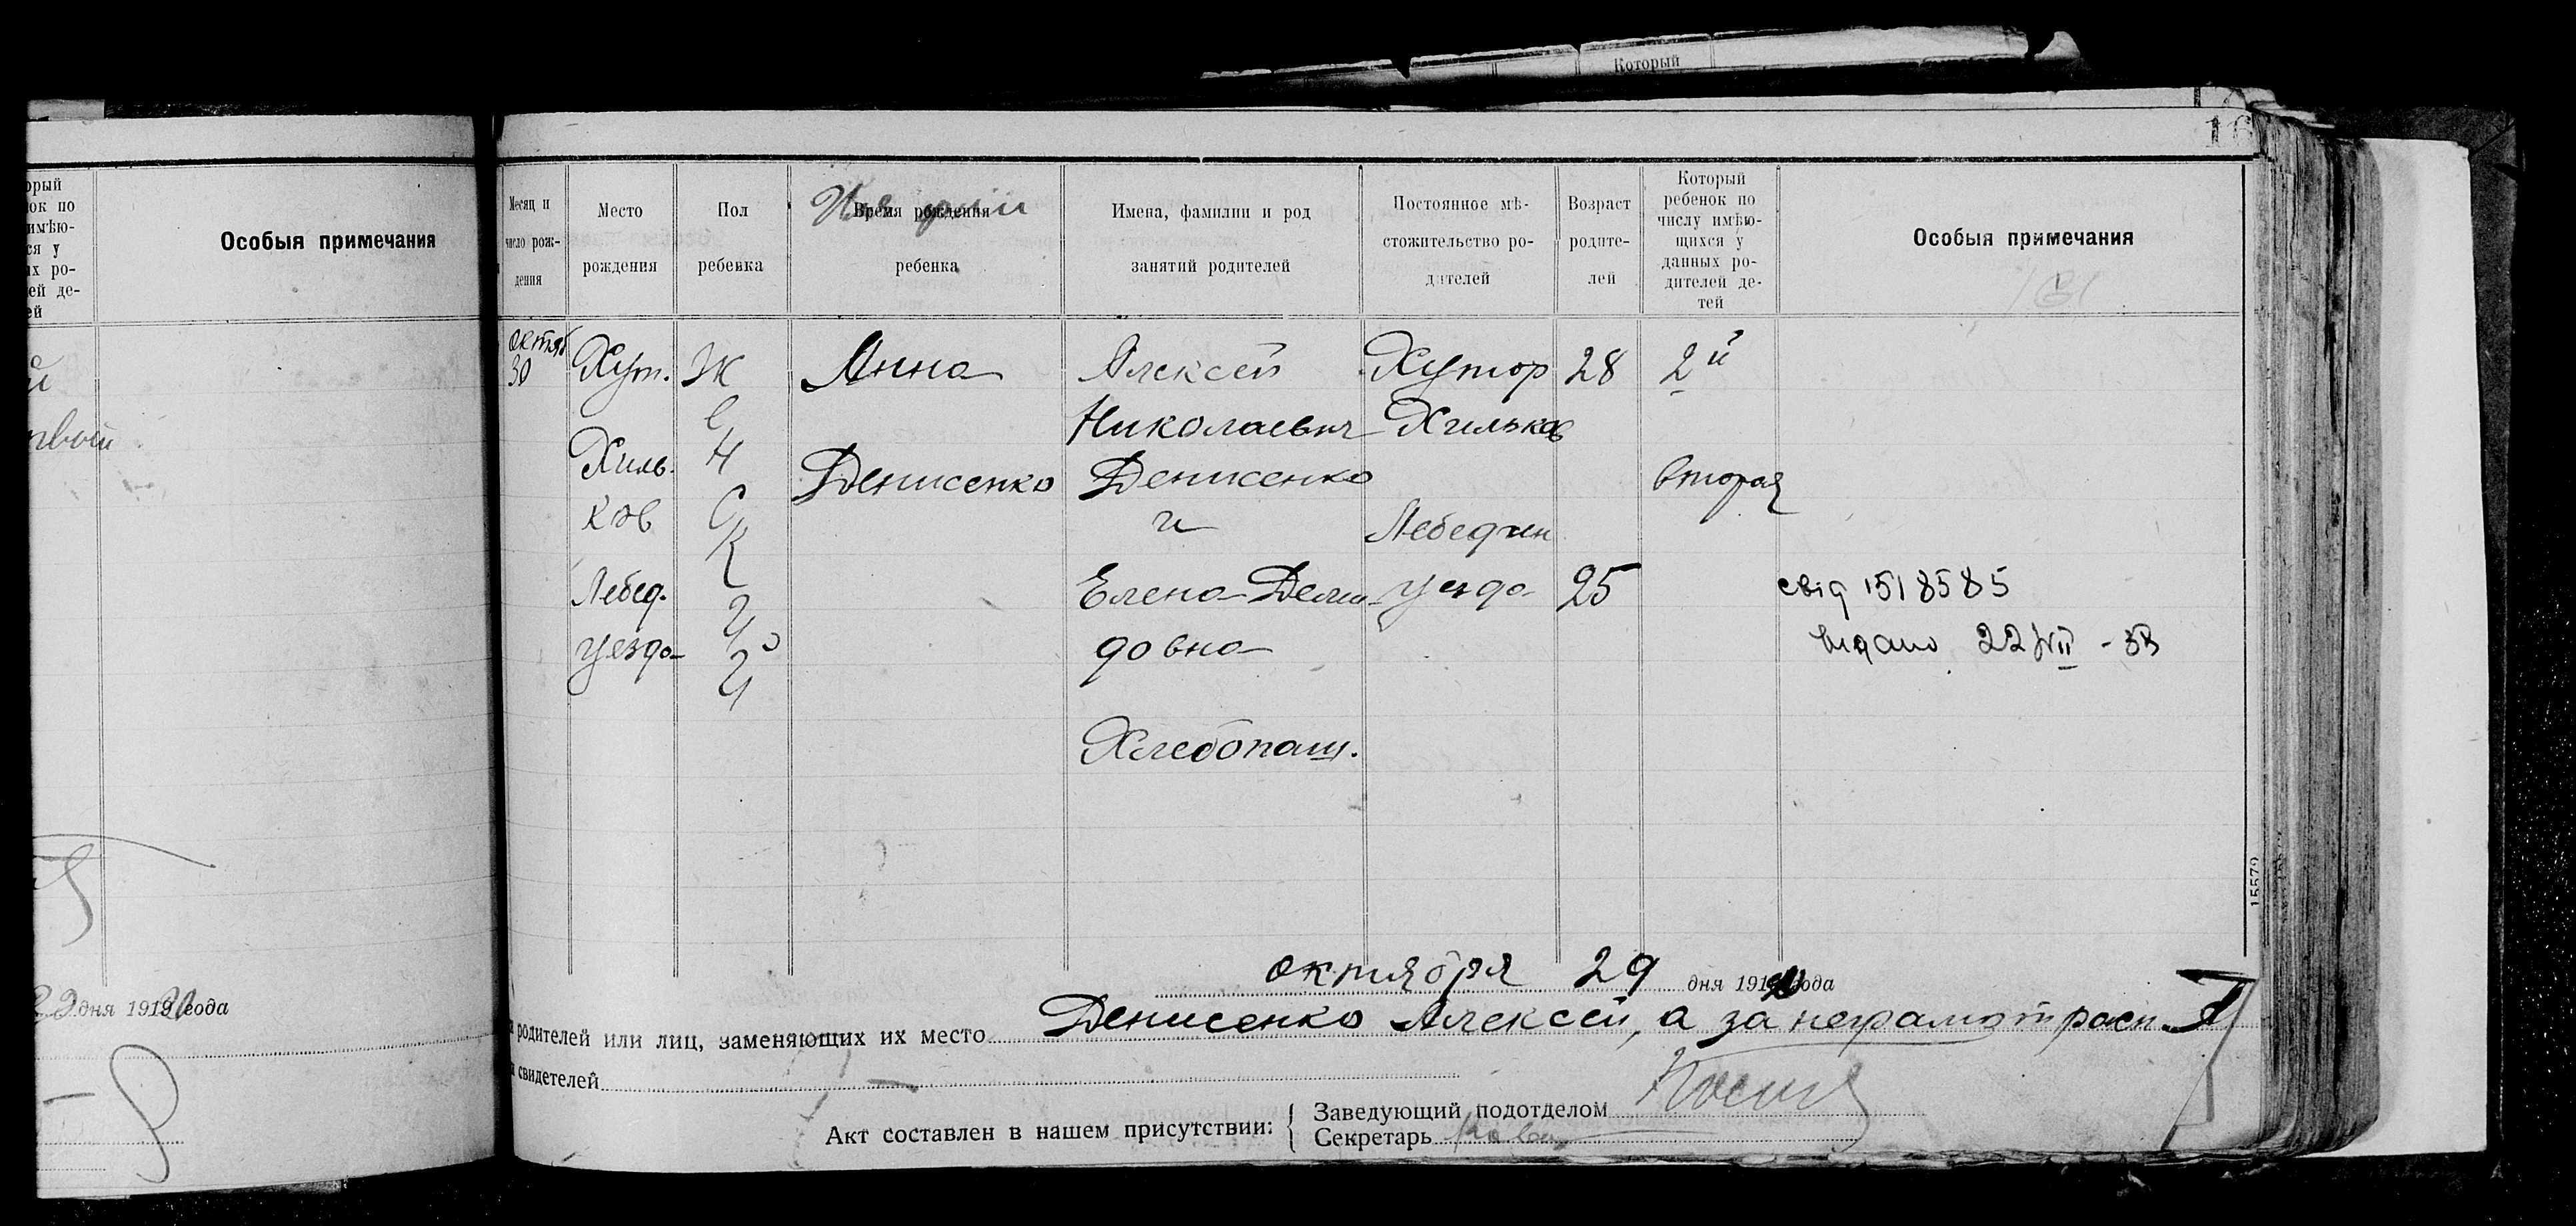 Который
16
орый
ок по
имѣю-
ся у
их ро-
ей де-
ей
Особыя примечания
й
рвый
дня 1919 года
Месяц и
число рож-
дения
Место
рождения
Пол
ребенка
Время рождения
ребенка
Имена, фамилии и род
занятий родителей
Постоянное мѣ-
стожительство ро-
дителей
Возраст
родите-
лей
Который
ребенок по
числу имѣю-
щихся у
данных ро-
дителей де-
тей
Особыя примечания
октяб
30
Хут.
Хиль-
ков
Лебед.
уезда
Ж
е
н
с
к
и
й
Анна
Денисенко
Алексей
Николаевич
Денисенко
и
Елена Деми-
довна
Хлебопаш.
Хутор
Хильков
Лебедин
уезда
28
25
2й
вторая
свід 1518585
видано 22/VII - 53
15579
октября 29 дня 191 года
родителей или лиц, заменяющих их место Денисенко Алексей, а за неграмот расп.
свидетелей
Акт составлен в нашем присутствии:
Заведующий подотделом
Секретарь